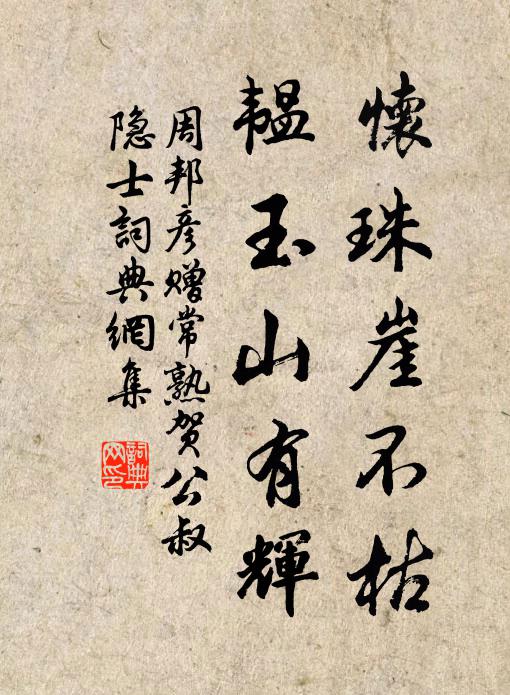 懷珠崖不枯
韞玉山有輝
周邦彦赠常熟贺公叔
隐士詞典網集
詞典網印